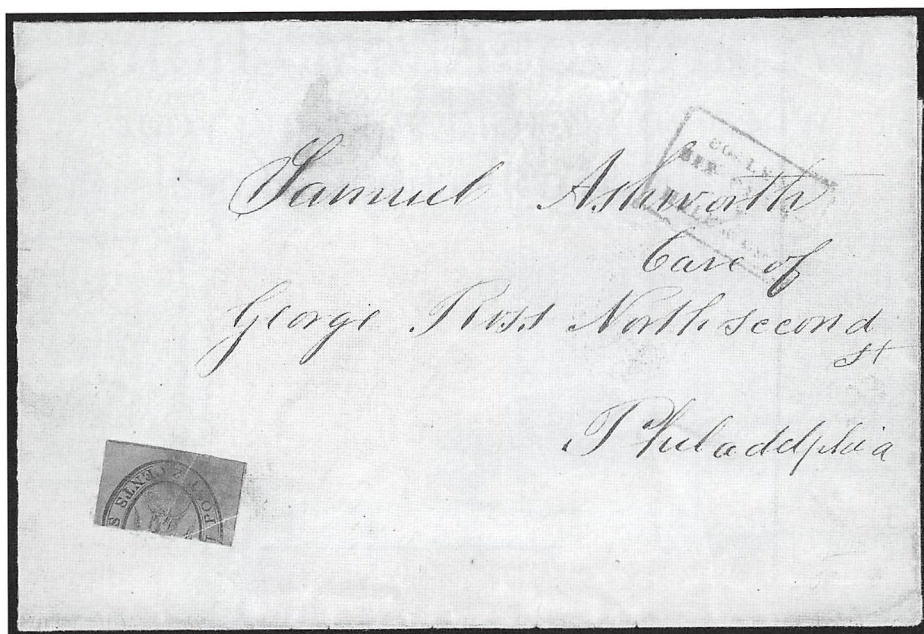 Samuel Ashworth
Care of
George Ross North second
st
Philadelphia
CENTS